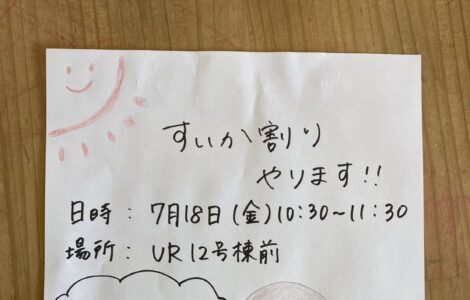 すいか割り
やります!!
日時: 7月18日(金)10:30~11:30
場所: UR12号棟前